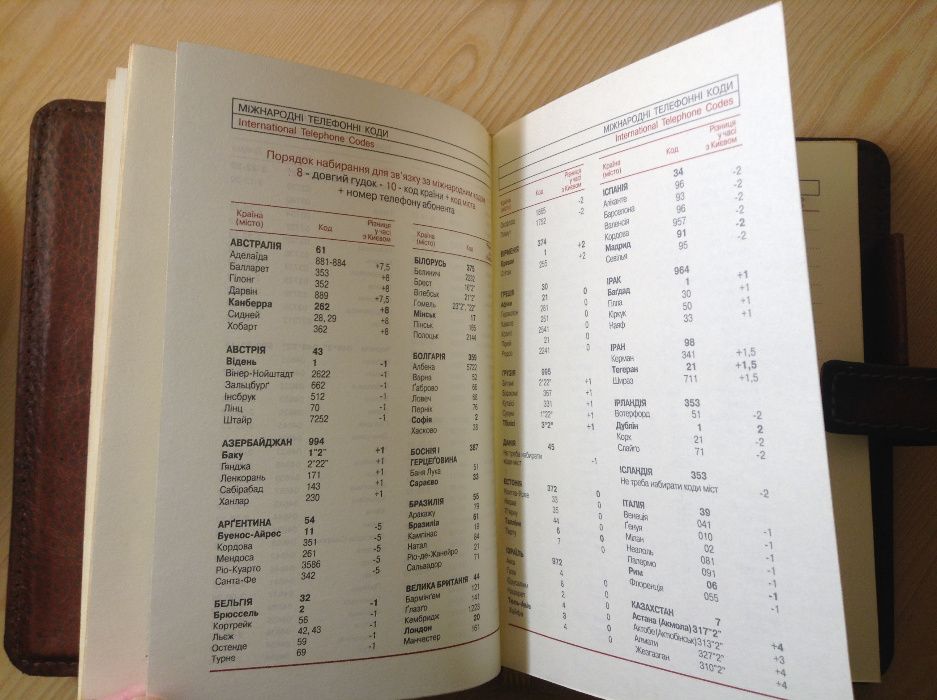 МІЖНАРОДНІ ТЕЛЕФОННІ КОДИ
International Telephone Codes
Порядок набирання для зв'язку за міжнародним кодом
8 - довгий гудок - 10 - код країни + код міста
+ номер телефону абонента
Країна (місто) Код Різниця у часі з Києвом
АВСТРАЛІЯ 61
Аделаїда 881-884 +7,5
Балларет 353 +8
Гілонг 352 +8
Дарвін 889 +7,5
Канберра 262 +8
Сидней 28, 29 +8
Хобарт 362 +8
АВСТРІЯ 43
Відень 1 -1
Вінер-Нойштадт 2622 -1
Зальцбург 662 -1
Інсбрук 512 -1
Лінц 70 -1
Штайр 7252 -1
АЗЕРБАЙДЖАН 994
Баку 1"2" +1
Гянджа 2"22" +1
Ленкорань 171 +1
Сабірабад 143 +1
Ханлар 230 +1
АРҐЕНТИНА 54
Буенос-Айрес 11 -5
Кордова 351 -5
Мендоса 261 -5
Ріо-Куарто 3586 -5
Санта-Фе 342 -5
БЕЛЬГІЯ 32
Брюссель 2 -1
Кортрейк 56 -1
Льєж 42, 43 -1
Остенде 59 -1
Турне 69 -1
Країна (місто) Код
БІЛОРУСЬ 375
Белиничі 2232
Брест 16"2"
Вітебськ 21"2"
Гомель 23"2", "22"
Мінськ 17
Пінськ 165
Полоцьк 2144
БОЛГАРІЯ 359
Албена 5722
Варна 52
Габрово 66
Ловеч 68
Пернік 76
Софія 2
Хасково 38
БОСНІЯ І 387
ГЕРЦЕГОВИНА
Баня Лука 51
Сараєво 33
БРАЗИЛІЯ 55
Аракажу
Бразилія 61
Кампінас 19
Натал 84
Ріо-де-Жанейро 21
Сальвадор 71
ВЕЛИКА БРИТАНІЯ 44
Бармінгем 121
Ґлазґо 141
Кембридж 1223
Лондон 20
Манчестер 161
МІЖНАРОДНІ ТЕЛЕФОННІ КОДИ
International Telephone Codes
Країна (місто) Код Різниця у часі з Києвом
-2
1752 -2
ВІРМЕНІЯ 374
1 +2
255 +2
ГРЕЦІЯ 30
21 0
261 0
251 0
2541 0
21 0
2241 0
ГРУЗІЯ 995
2"22" +1
367 +1
331 +1
1"22" +1
Тбілісі 3"2" +1
ДАНІЯ 45
Не треба набирати
коди міст -1
ЕСТОНІЯ 372
33 0
35 0
44 0
6 0
7 0
972
4 0
6 0
2 0
4 0
3 0
4 0
Країна (місто) Код Різниця у часі з Києвом
ІСПАНІЯ 34
Аліканте 96 -2
Барселона 93 -2
Валенсія 96 -2
Кордова 957 -2
Мадрид 91 -2
Севілья 95 -2
ІРАК 964
Баґдад 1 +1
Гілла 30 +1
Кіркук 50 +1
Наяф 33 +1
ІРАН 98
Керман 341 +1,5
Тегеран 21 +1,5
Шираз 711 +1,5
ІРЛАНДІЯ 353
Вотерфорд 51 -2
Дублін 1 2
Корк 21 -2
Слайго 71 -2
ІСЛАНДІЯ 353
Не треба набирати коди міст -2
ІТАЛІЯ 39
Венація 041 -1
Генуя 010 -1
Мілан 02 -1
Неаполь 081 -1
Палермо 091 -1
Рим 06 -1
Флоренція 055 -1
КАЗАХСТАН 7
Астана (Акмола) 317"2" +4
Актобе (Актюбінськ) 313"2" +3
Алмати 327"2" +4
Жезгазган 310"2" +4